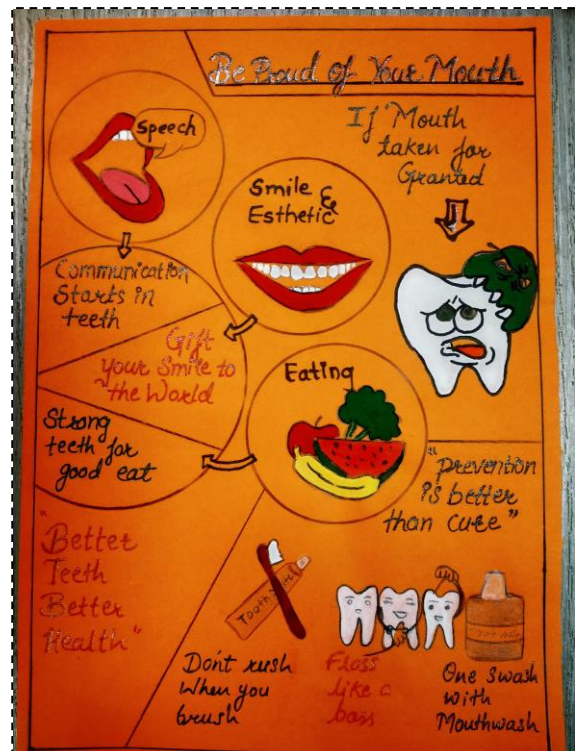 Be Proud of Your Mouth
Speech
If Mouth
taken for
Granted
Smile &
Esthetic
Communication
Starts in
teeth
Gift
your Smile to
the World
Eating
Strong
teeth for
good eat
"prevention
is better
than cure"
"Better
Teeth
Better
Health"
Don't rush
When you
brush
Floss
like a
boss
One swash
with
Mouthwash